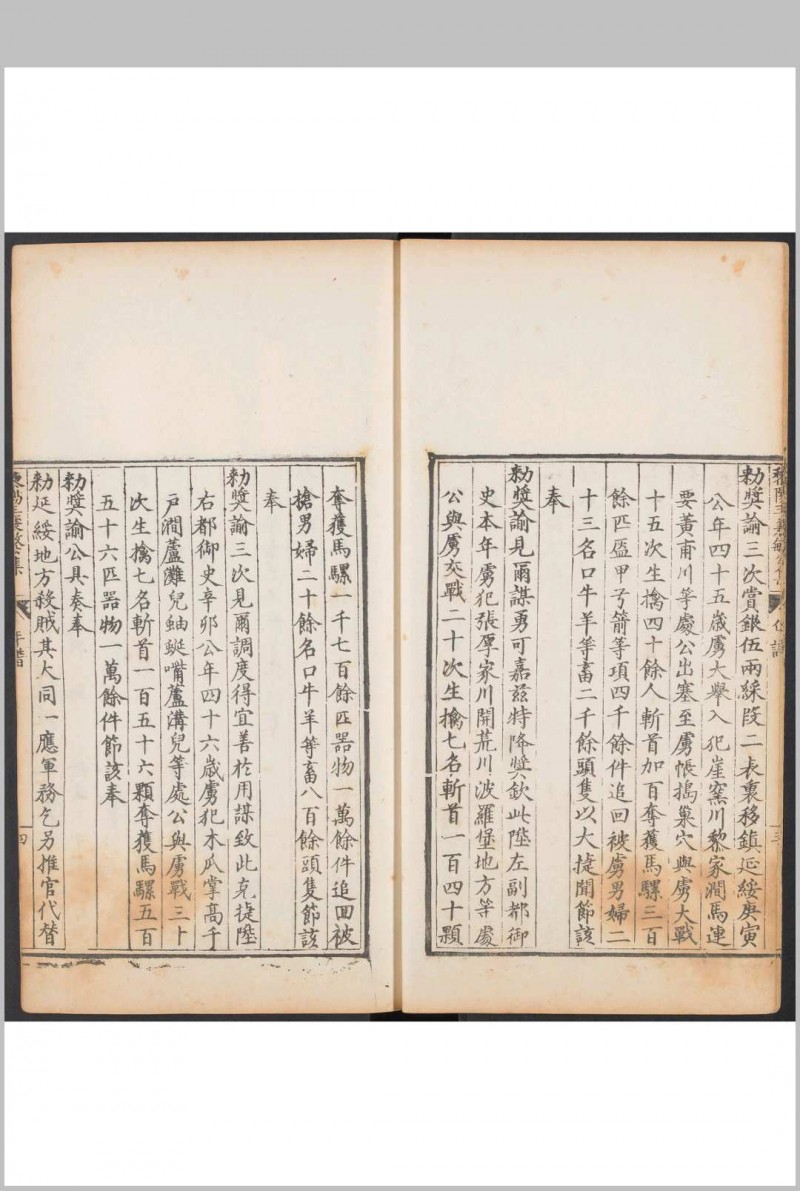 勑奬諭三次賞銀伍兩綵叚二表裏移鎮延綏庚寅
公年四十五歲虜大舉入犯崖窰川黎家澗馬連
要黃甫川等處公出塞至虜帳搗巢穴與虜大戰
十五次生擒四十餘人斬首加百奪獲馬騾三百
餘匹盔甲弓箭等項四千餘件追回被虜男婦二
十三名口牛羊等畜二千餘頭隻以大捷聞節該
奉
勑奬諭見爾謀勇可嘉玆特降奬欽此陞左副都御
史本年虜犯張厚家川開荒川波羅堡地方等處
公與虜交戰二十次生擒七名斬首一百四十顆
奪獲馬騾一千七百餘匹器物一萬餘件追回被
搶男婦二十餘名口牛羊等畜八百餘頭隻節該
奉
勑奬諭三次見爾調度得宜善於用謀致此克捷陞
右都御史辛卯公年四十六歲虜犯木瓜掌高千
戶澗蘆灘兒蚰蜒嘴蘆溝兒等處公與虜戰三十
次生擒七名斬首一百五十六顆奪獲馬騾五百
五十六匹器物一萬餘件節該奉
勑奬諭公具奏奉
勑延綏地方殺賊其大同一應軍務乞另推官代替
年譜
四